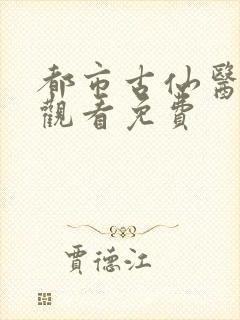 都市古仙醫
觀看免費
賈德江